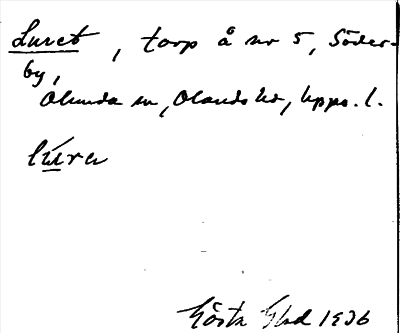 Luret, torp å nr 5, Söder-
by,
Olanda sn, Olands hd, Upps. l.
lura
Gösta Eld 1936